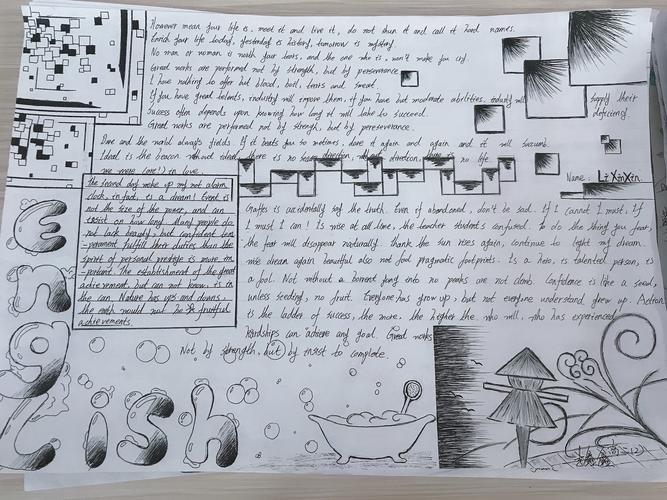 However mean your life is, meet it and live it, do not shun it and call it hard names.
Enrich your life today, yesterday is history, tomorrow is mystery.
No man or woman is worth your tears, and the one who is, won't make you cry.
Great works are performed not by strength, but by perseverance
I have nothing to offer but blood, boil, tears and sweat.
If you have great talents, industry will improve them, if you have but moderate abilities, industry will supply their
Success often depends upon knowing how long it will take to succeed. defisciency.
Great works are performed not by strength, but by perseverance.
Dare and the world always yields. If it beats you sometimes, dare it again and again and it will succumb.
Ideal is the beacon without ideal, there is no direction, without direction, there is no life
we were in love.
Name: Li XinXin.
the second day wake up my not alarm
clock, in fact, is a dream! Event is
not the size of the power, and can
insist on how long Many people do
not lack beauty, but confident tem
-perament fulfill their duties than the
spirit of personal prestige is more im
-portant. The establishment of the great
achievement, but can not know, is in
the can. Nature has ups and downs,
the earth would not be fruitful
achievements.
Gaffes is accidentally say the truth. Even if abandoned, don't be sad. If I cannot I must, If
I must I can! Is wise at all time, the teacher students confused. To do the thing you fear,
the fear will disappear naturally. thank the sun rises again, continue to light my dream.
wise dream again beautiful also not food pragmatic footprints. Is a hero, is talented person, is
a fool. Not without a torrent pang into no peaks are not climb. Confidence is like a seed,
unless seeding, no fruit. Everyone has grow up, but not everyone understand grew up. Action
is the ladder of success, the more the higher the who will, who has experienced
hardships can achieve any goal. Great works
Not by strength, but by insist to complete.
English